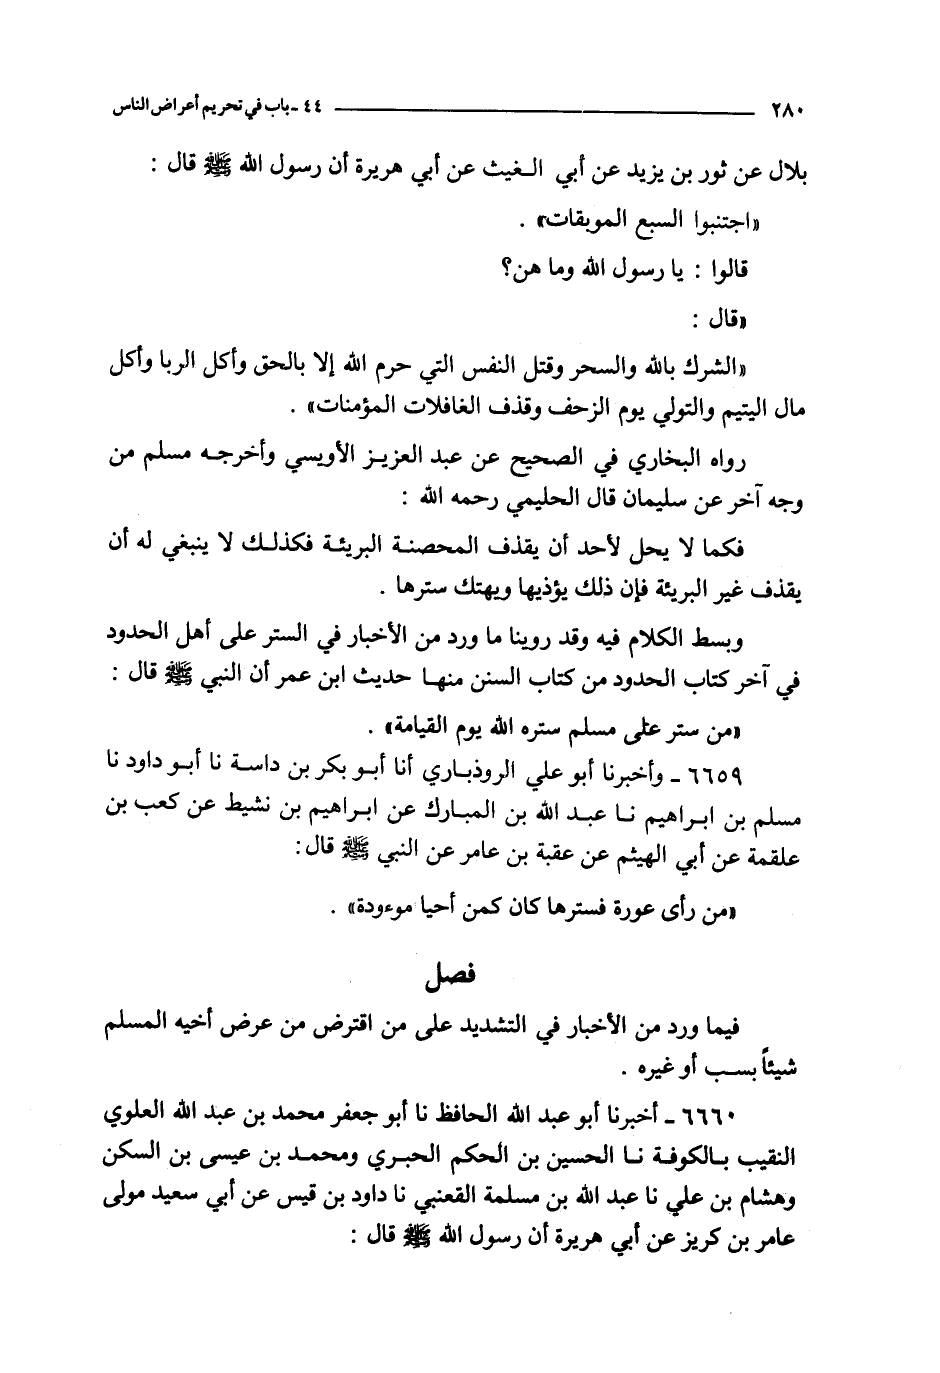 ٢٨٠ ــــــــــــــــ ٤٤ - باب في تحريم أعراض الناس
بلال عن ثور بن يزيد عن أبي الـغيث عن أبي هريرة أن رسول الله ﷺ قال :
«اجتنبوا السبع الموبقات» .
قالوا : يا رسول الله وما هن؟
«قال :
«الشرك بالله والسحر وقتل النفس التي حرم الله إلا بالحق وأكل الربا وأكل
مال اليتيم والتولي يوم الزحف وقذف الغافلات المؤمنات» .
رواه البخاري في الصحيح عن عبد العزيز الأويسي وأخرجه مسلم من
وجه آخر عن سليمان قال الحليمي رحمه الله :
فكما لا يحل لأحد أن يقذف المحصنة البريئة فكذلك لا ينبغي له أن
يقذف غير البريئة فإن ذلك يؤذيها ويهتك سترها .
وبسط الكلام فيه وقد روينا ما ورد من الأخبار في الستر على أهل الحدود
في آخر كتاب الحدود من كتاب السنن منها حديث ابن عمر أن النبي ﷺ قال :
«من ستر على مسلم ستره الله يوم القيامة» .
٦٦٥٩ ـ وأخبرنا أبو علي الروذباري أنا أبو بكر بن داسة نا أبو داود نا
مسلم بن ابراهيم نا عبد الله بن المبارك عن ابراهيم بن نشيط عن كعب بن
علقمة عن أبي الهيثم عن عقبة بن عامر عن النبي ﷺ قال:
«من رأى عورة فسترها كان كمن أحيا موءودة» .
فصل
فيما ورد من الأخبار في التشديد على من اقترض من عرض أخيه المسلم
شيئاً بسب أو غيره .
٦٦٦٠ ـ أخبرنا أبو عبد الله الحافظ نا أبو جعفر محمد بن عبد الله العلوي
النقيب بالكوفة نا الحسين بن الحكم الحبري ومحمد بن عيسى بن السكن
وهشام بن علي نا عبد الله بن مسلمة القعنبي نا داود بن قيس عن أبي سعيد مولى
عامر بن كريز عن أبي هريرة أن رسول الله ﷺ قال :